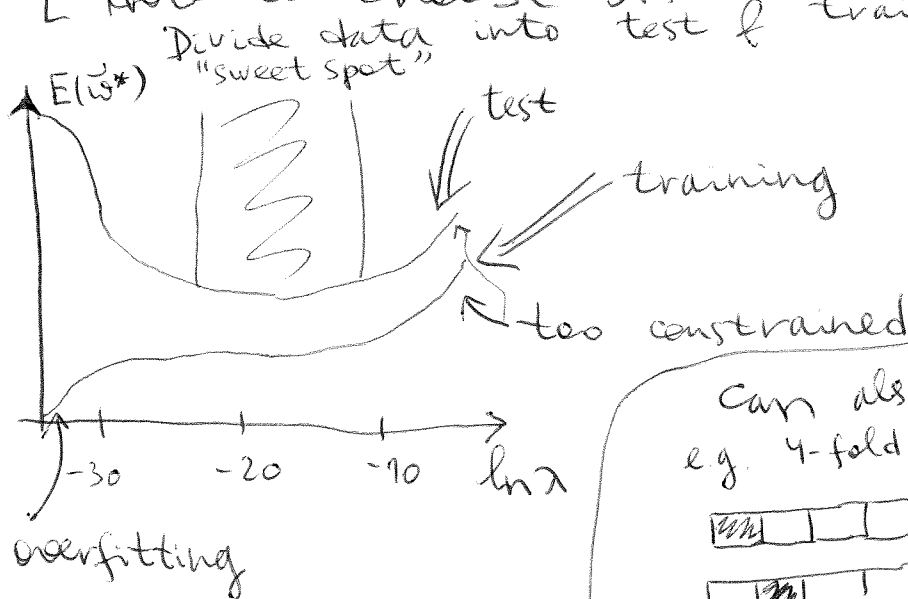 Divide data into test &
"sweet spot"
E(w̃*)
test
training
too constrained
-30 -20 -10 ln λ
overfitting
Can
e.g. 4-fold